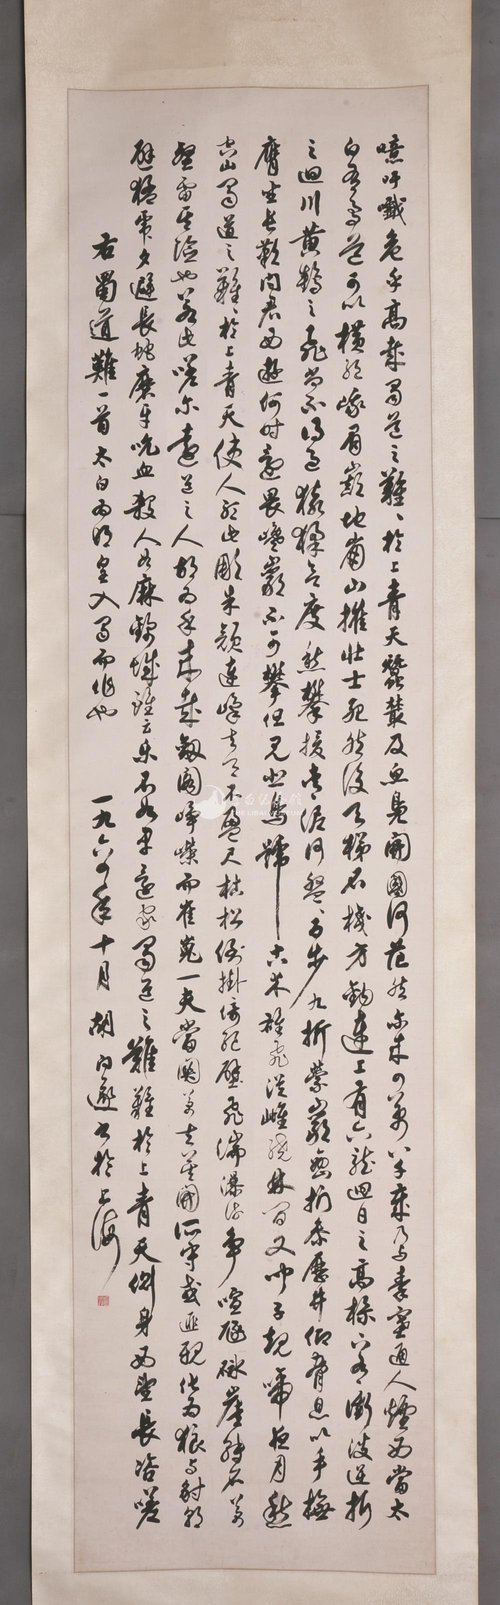 噫吁戲危乎高哉蜀道之難難於上青天蠶叢及魚鳧開國何茫然爾來四萬八千歲乃與秦塞通人煙西當太
白有鳥道可以橫絕峨眉巔地崩山摧壯士死然後天梯石棧方鉤連上有六龍回日之高標下有衝波逆折
之迴川黃鶴之飛尚不得過猿猱欲度愁攀援青泥何盤盤百步九折縈巖巒捫參歷井仰脅息以手撫
膺坐長歎問君西遊何時還畏途巉巖不可攀但見悲鳥號古木雄飛從雌繞林間又聞子規啼夜月愁
空山蜀道之難難於上青天使人聽此凋朱顏連峰去天不盈尺枯松倒掛倚絕壁飛湍瀑流爭喧豗砯崖轉石萬
壑雷其險也若此嗟爾遠道之人胡為乎來哉劍閣崢嶸而崔嵬一夫當關萬夫莫開所守或匪親化為狼與豺朝
避猛虎夕避長蛇磨牙吮血殺人如麻錦城雖云樂不如早還家蜀道之難難於上青天側身西望長咨嗟
右蜀道難一首太白為明皇入蜀而作也 一九六四年十月胡問遂書於上海